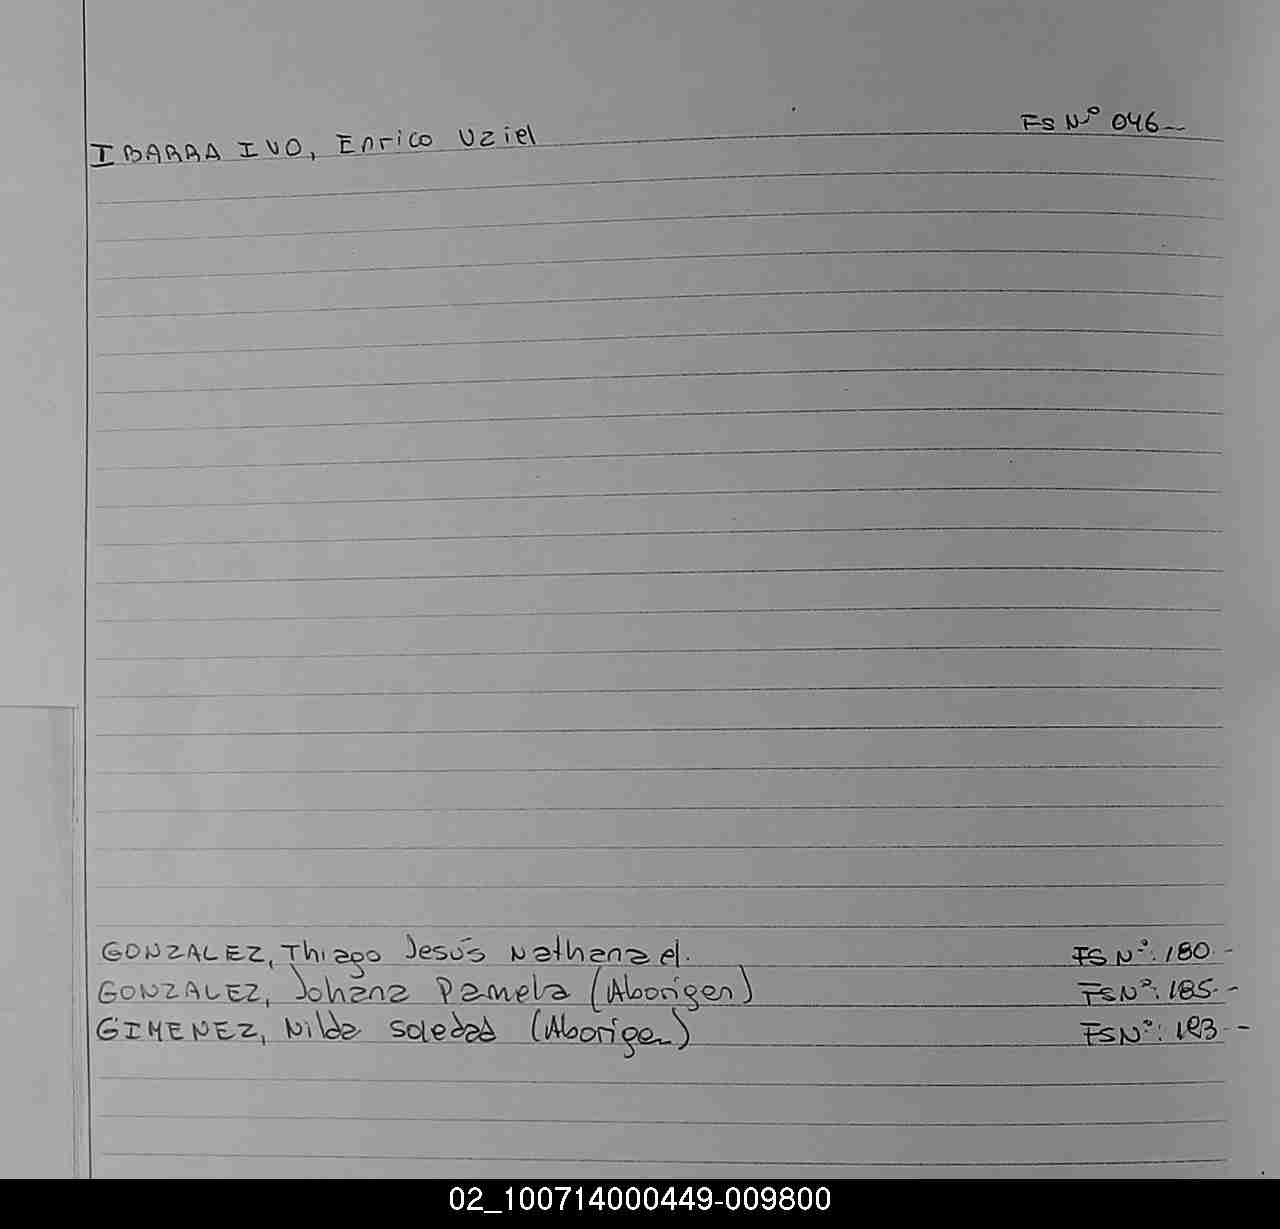 IBARRA IVO, Enrico Uziel FS Nº 046
GONZALEZ, Thiago Jesús Nathanael. FS Nº: 180.-
GONZALEZ, Johana Pamela (Aborigen) FS Nº: 185.-
GIMENEZ, Nilda Soledad (Aborigen) FS Nº: 193.-
02_100714000449-009800